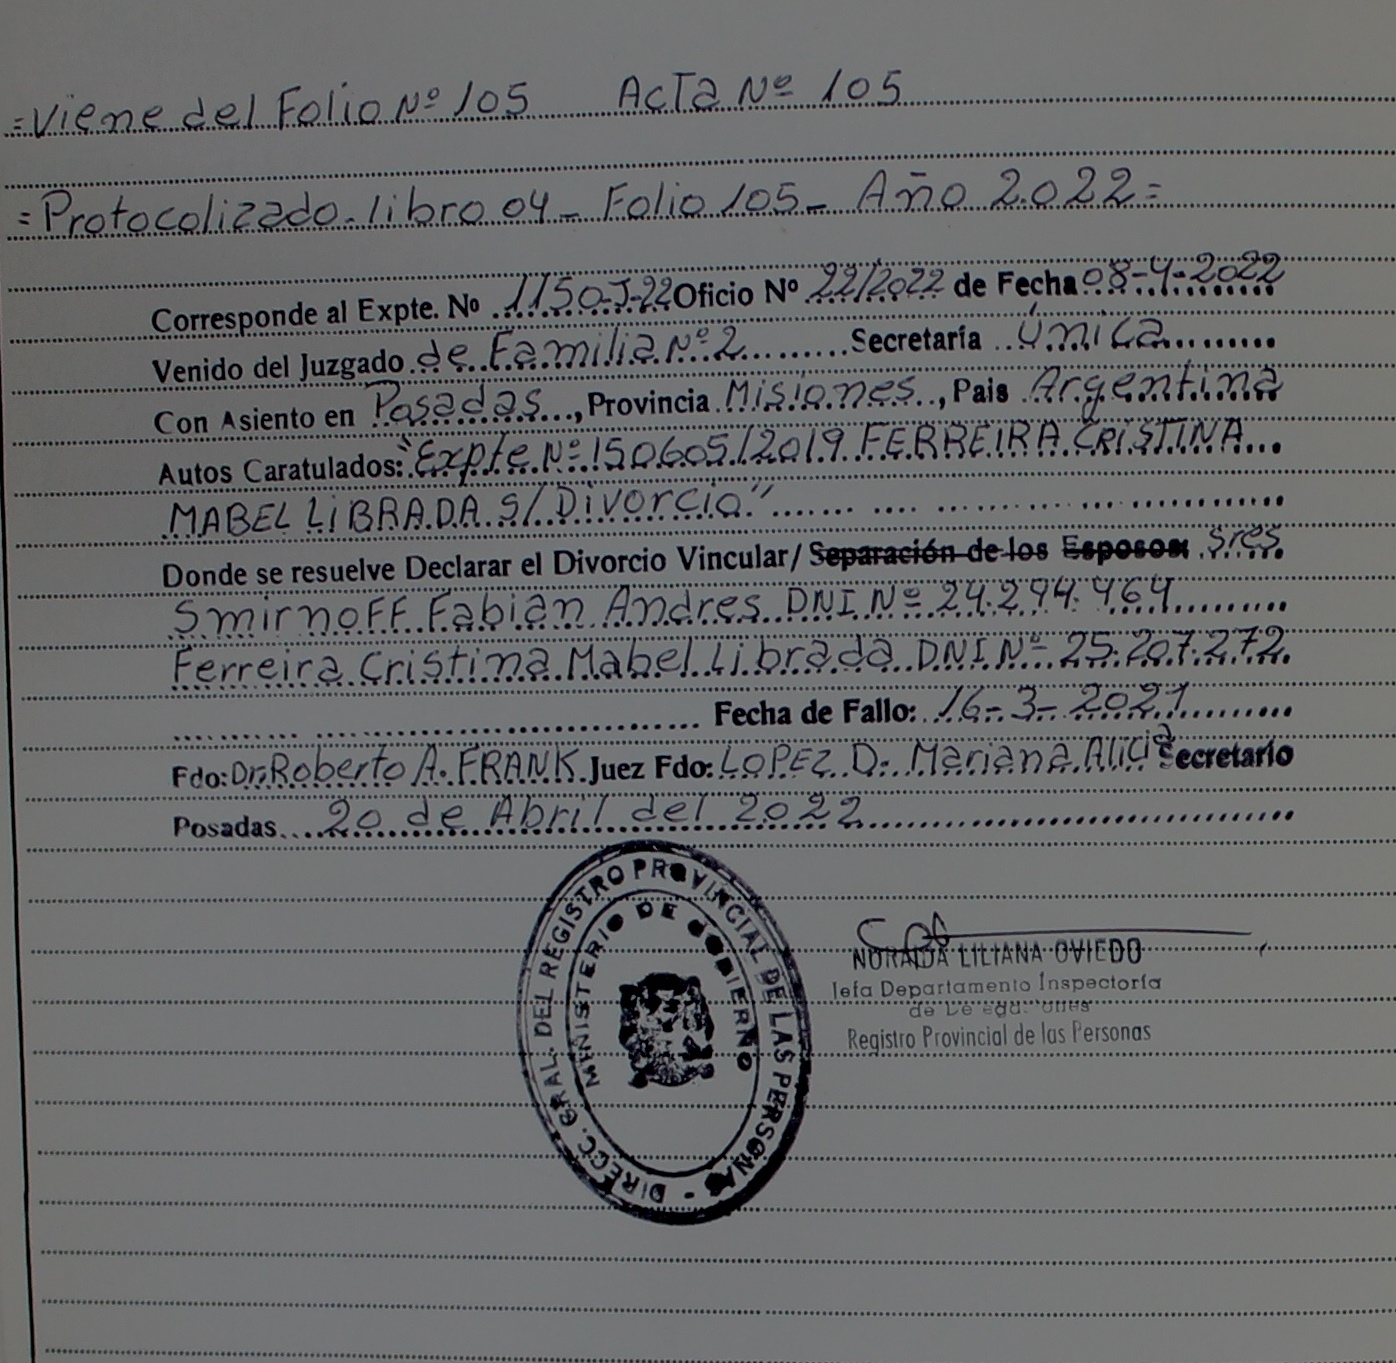 =Viene del Folio Nº 105 Acta Nº 105
=Protocolizado-libro 04- Folio 105- Año 2022=
Corresponde al Expte. Nº 1150-J-22 Oficio Nº 22/2022 de Fecha 08-4-2022
Venido del Juzgado de Familia Nº 2 Secretaría Única
Con Asiento en Posadas, Provincia Misiones, Pais Argentina
Autos Caratulados: "Expte Nº 150605/2019 FERREIRA CRISTINA
MABEL LIBRADA S/Divorcio"
Donde se resuelve Declarar el Divorcio Vincular/ Separación de los Esposos Sres
Smirnoff Fabián Andres DNI Nº 24.294.464
Ferreira Cristina Mabel Librada DNI Nº 25.207.272
Fecha de Fallo: 16-3-2021
Fdo: Dr. Roberto A. FRANK Juez Fdo: LOPEZ D. Mariana Alicia Secretario
Posadas 20 de Abril del 2022
DIRECC. GRAL. DEL REGISTRO PROVINCIAL DE LAS PERSONAS -
MINISTERIO DE GOBIERNO
NORAIDA LILIANA OVIEDO
Jefa Departamento Inspectoría
de
Registro Provincial de las Personas